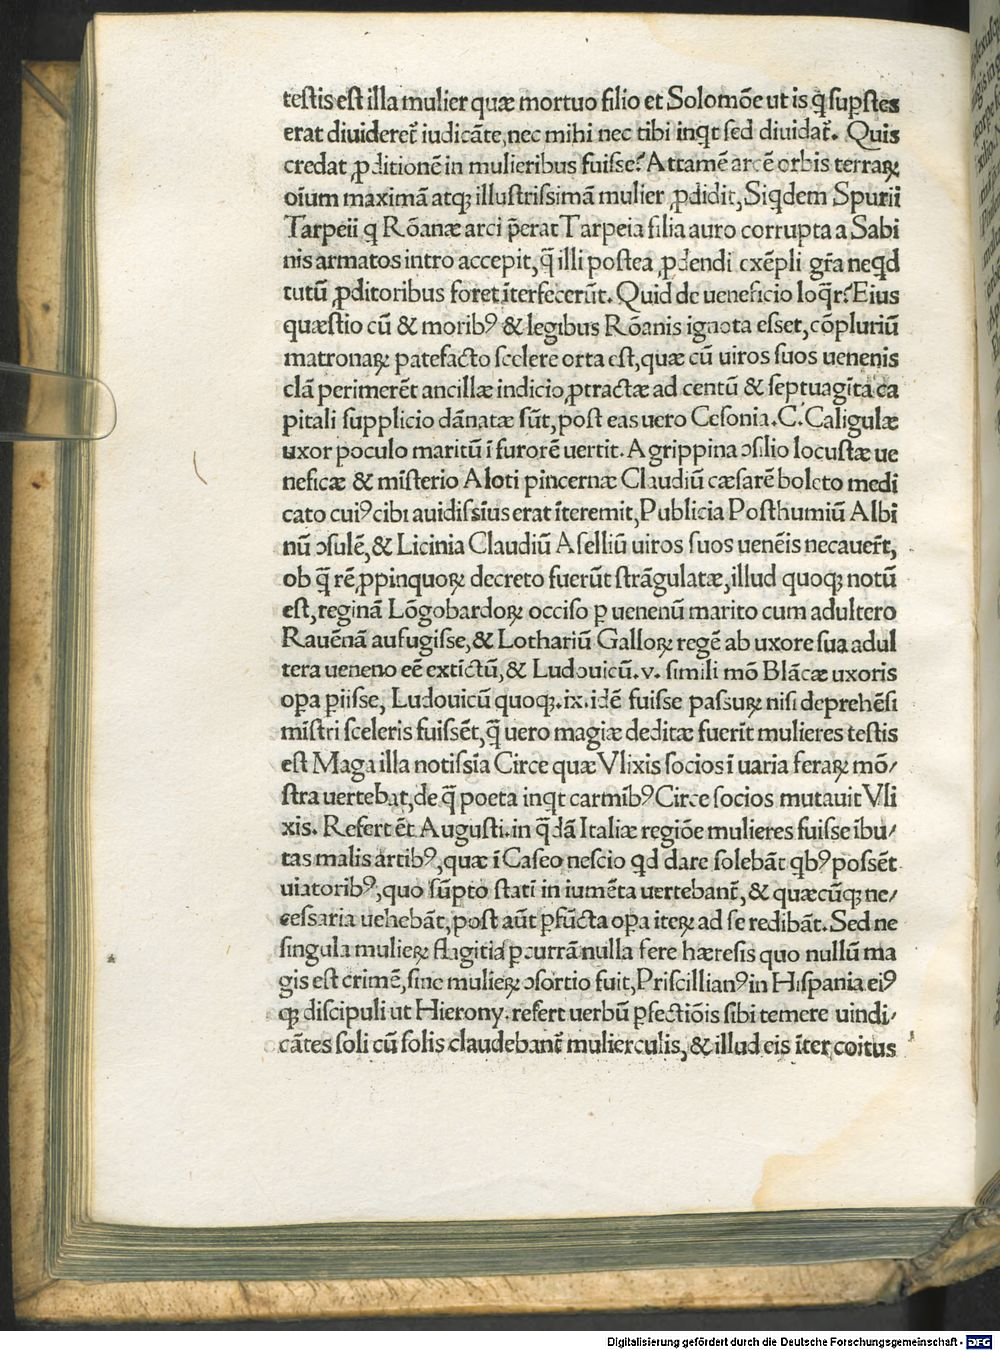 testis est illa mulier quæ mortuo filio et Solomõe ut is q̃ sup̱stes
erat diuideret᷑ iudicãte, nec mihi nec tibi inqt sed diuidat᷑. Quis
credat ꝓditionẽ in mulieribus fuisse? Attamẽ arcẽ orbis terraꝝ
oĩum maximã atqꝫ illustrissimã mulier ꝓdidit, Siqdem Spurii
Tarpeii q Rõanæ arci p̃erat Tarpeia filia auro corrupta a Sabi
nis armatos intro accepit, q̃ illi postea ꝓdendi exẽpli gr̃a neqd
tutũ ꝓditoribus foret ĩterfecerũt. Quid de ueneficio loq̃r? Eius
quæstio cũ & moribꝰ & legibus Rõanis ignota esset, cõpluriũ
matronaꝝ patefacto scelere orta est, quæ cũ uiros suos uenenis
clã perimerẽt ancillæ indicio ꝓtractæ ad centũ & septuagĩta ca
pitali supplicio dãnatæ sũt, post eas uero Cesonia. C. Caligulæ
uxor poculo maritũ ĩ furorẽ uertit. Agrippina ↄsilio locustæ ue
neficæ & misterio Aloti pincernæ Claudiũ cæsarẽ boleto medi
cato cuiꝰ cibi auidissius erat ĩteremit, Publicia Posthumiũ Albi
nũ ↄsulẽ, & Licinia Claudiũ Aselliũ uiros suos uenẽis necauer̃t,
ob q̃ rẽ ꝓpinquoꝝ decreto fuerũt strãgulatæ, illud quoqꝫ notũ
est, reginã Lõgobardoꝝ occiso ꝑ uenenũ marito cum adultero
Rauẽnã aufugisse, & Lothariũ Galloꝝ regẽ ab uxore sua adul
tera ueneno eẽ extictũ, & Ludouicũ. v. simili mõ Blãcæ uxoris
oꝑa ꝑiisse, Ludouicũ quoqꝫ. ix. idẽ fuisse passuꝝ nisi deprehẽsi
mĩstri sceleris fuissẽt, q̃ uero magiæ deditæ fuerĩt mulieres testis
est Maga illa notissĩa Circe quæ Vlixis socios ĩ uaria feraꝝ mõ/
stra uertebat, de q̃ poeta inqt carmĩbꝰ Circe socios mutauit Vli
xis. Refert ẽt Augusti. in q̃dã Italiæ regiõe mulieres fuisse ĩbu/
tas malis artibꝰ, quæ ĩ Caseo nescio qd dare solebãt qbꝰ possẽt
uiatoribꝰ, quo sũpto stati in iumẽta uertebant᷑, & quæcũqꝫ ne/
cessaria uehebãt, post aũt ꝑfũcta oꝑa iteꝝ ad se redibãt. Sed ne
singula mulieꝝ flagitia ꝑcurrã nulla fere hæresis quo nullũ ma
gis est crimẽ, sine mulieꝝ ↄsortio fuit, Priscillianꝰ in Hispania eiꝰ
qꝫ discipuli ut Hierony. refert uerbũ ꝑfectiõis sibi temere uindi/
cãtes soli cũ solis claudebant᷑ mulierculis, & illud eis ĩter coitus
Digitalisierung gefördert durch die Deutsche Forschungsgemeinschaft - DFG